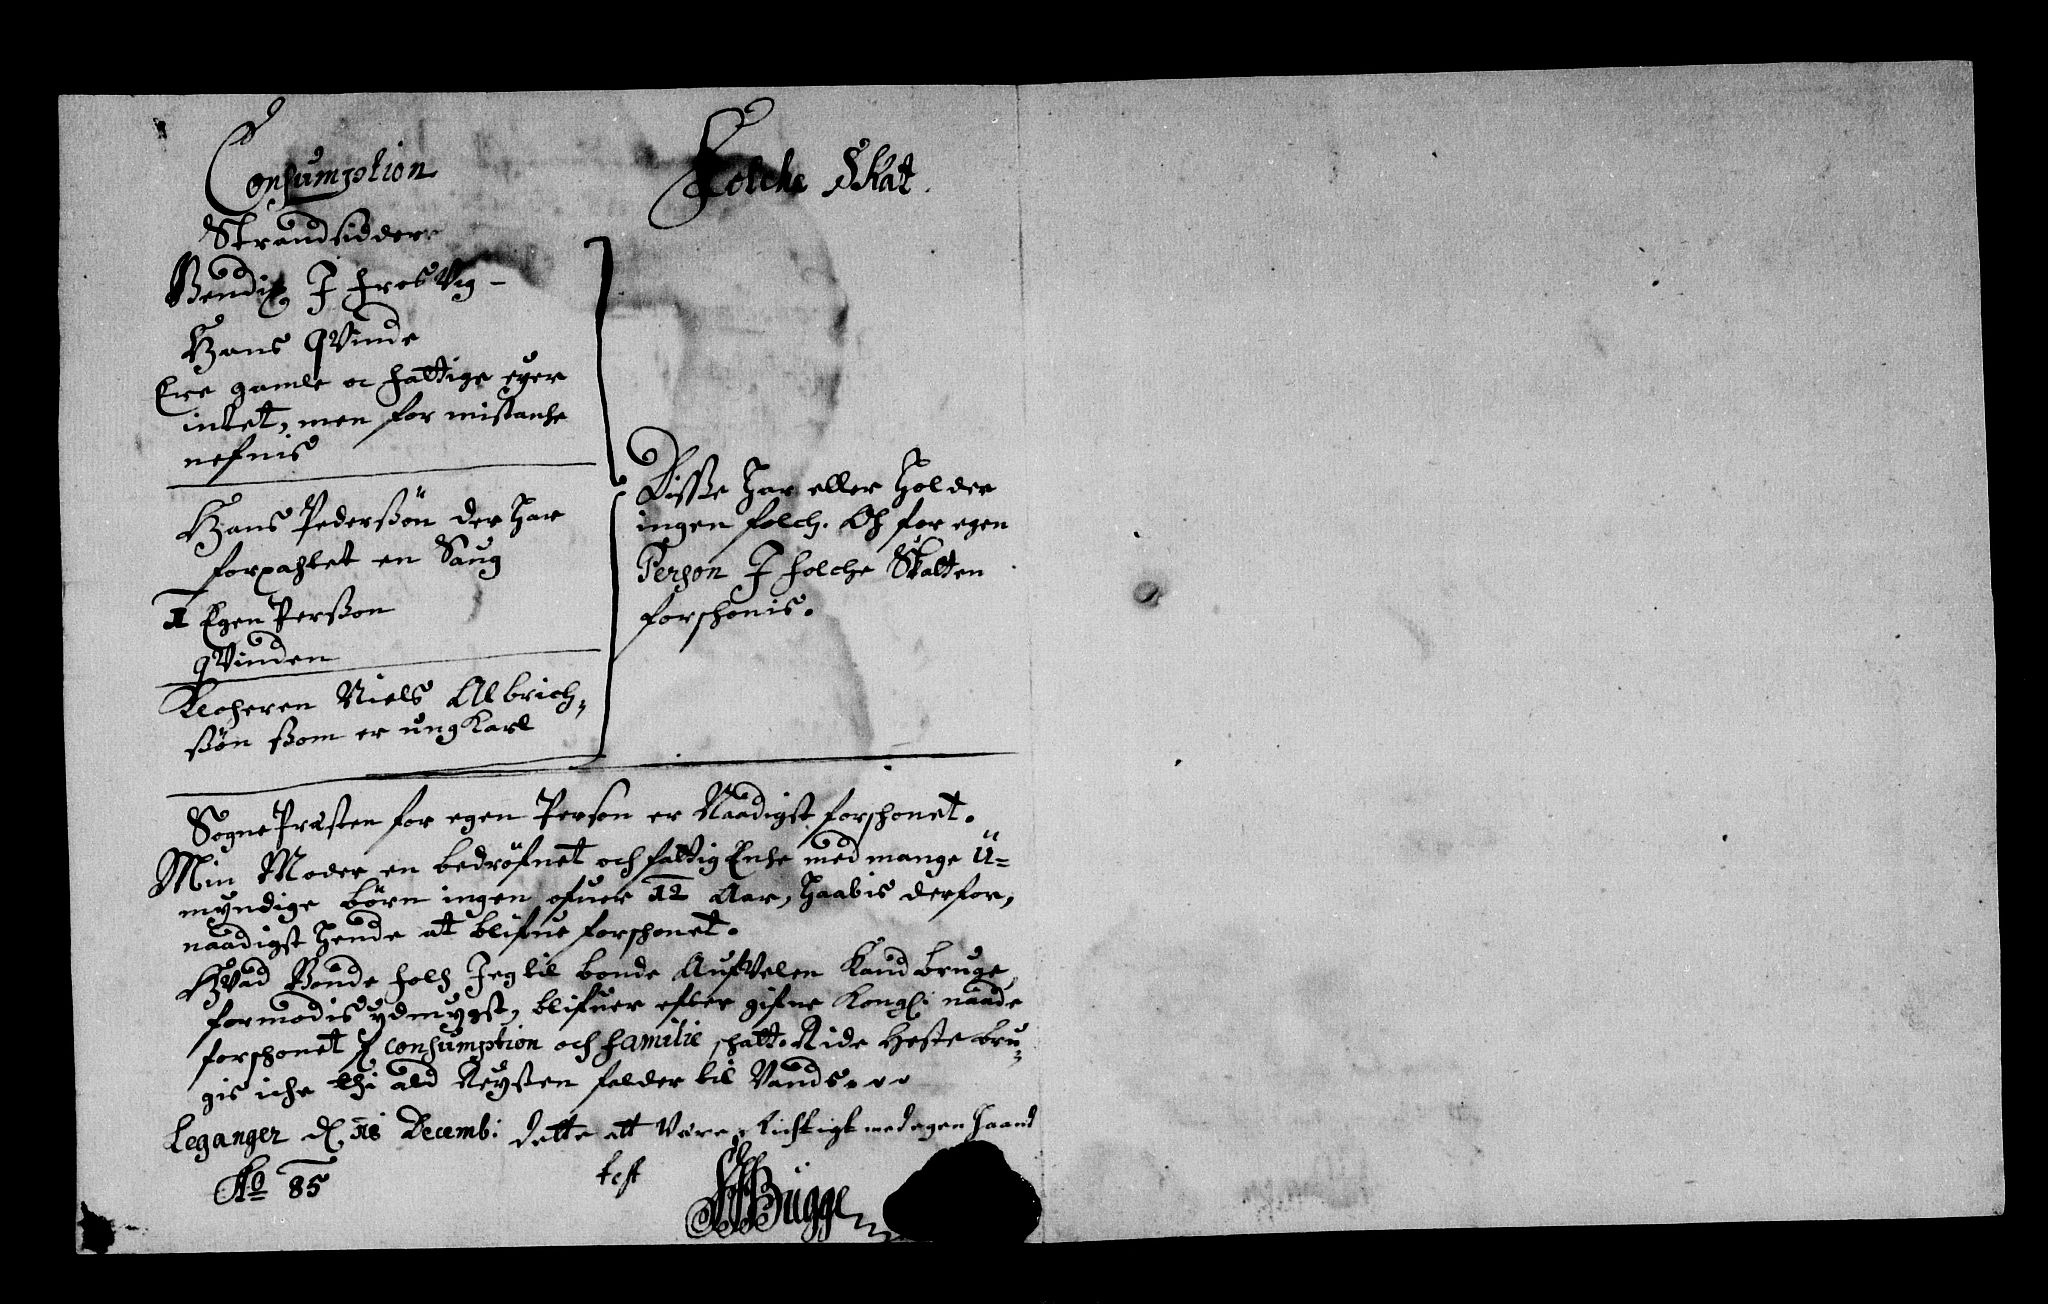 Consumption
Strandsiddere
Bendix J frosVig -
Hans qVinde
Ere gamle oc fattige eyer
intet, men for mistanche
nefnis
Hans Pederßön der har
forpahtet en Saug
1 Egen Perßon
qVinden
Klocheren Niels Albrich,,
ßön ßom er ung Karl
Folche Skat.
Disse har eller holder
ingen folch. Oh for egen
Person J folche Skatten
forschonis.
SognePræsten for egen Person er Naadigst forschonet.
Min Moder en bedröfnet och fattig Enche med mange ü=
myndige börn ingen ofuer 12 Aar, haabis derfor,
naadigst hende at blifue forschonet.
Hvad Bonde folch Jeg til bonde AufVelen Kand bruge,
formodis ydmygst, blifuer efter gifne Kongl: naade
forschonet J consumption och familie schatt. Ride heste bru,,
gis iche thi ald Reysten falder til Vands...
Leganger d. 18 Decemb: dette att være Richtigt med egen haand
Ao 85
test
Bügge